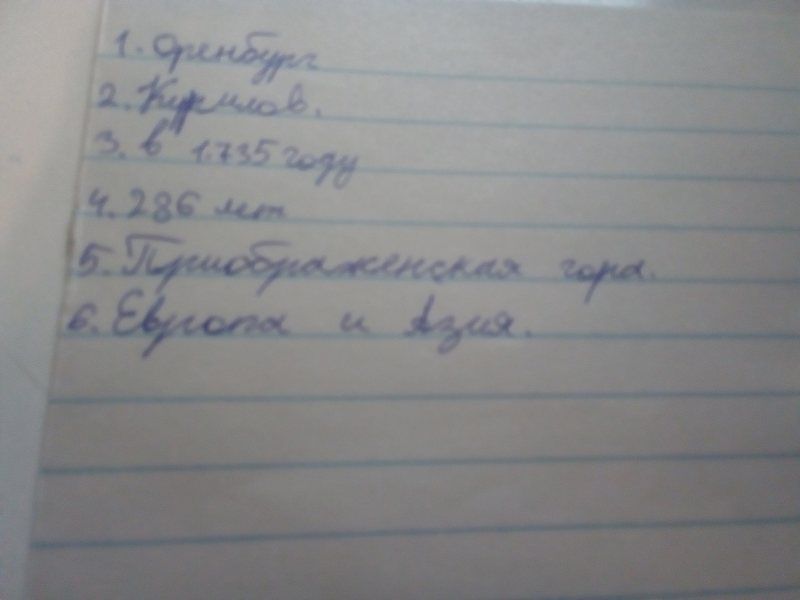 1. Оренбург
2. Кирилов.
3. в 1.735 году
4. 286 лет
5. Приображенская гора.
6. Европа и Азия.